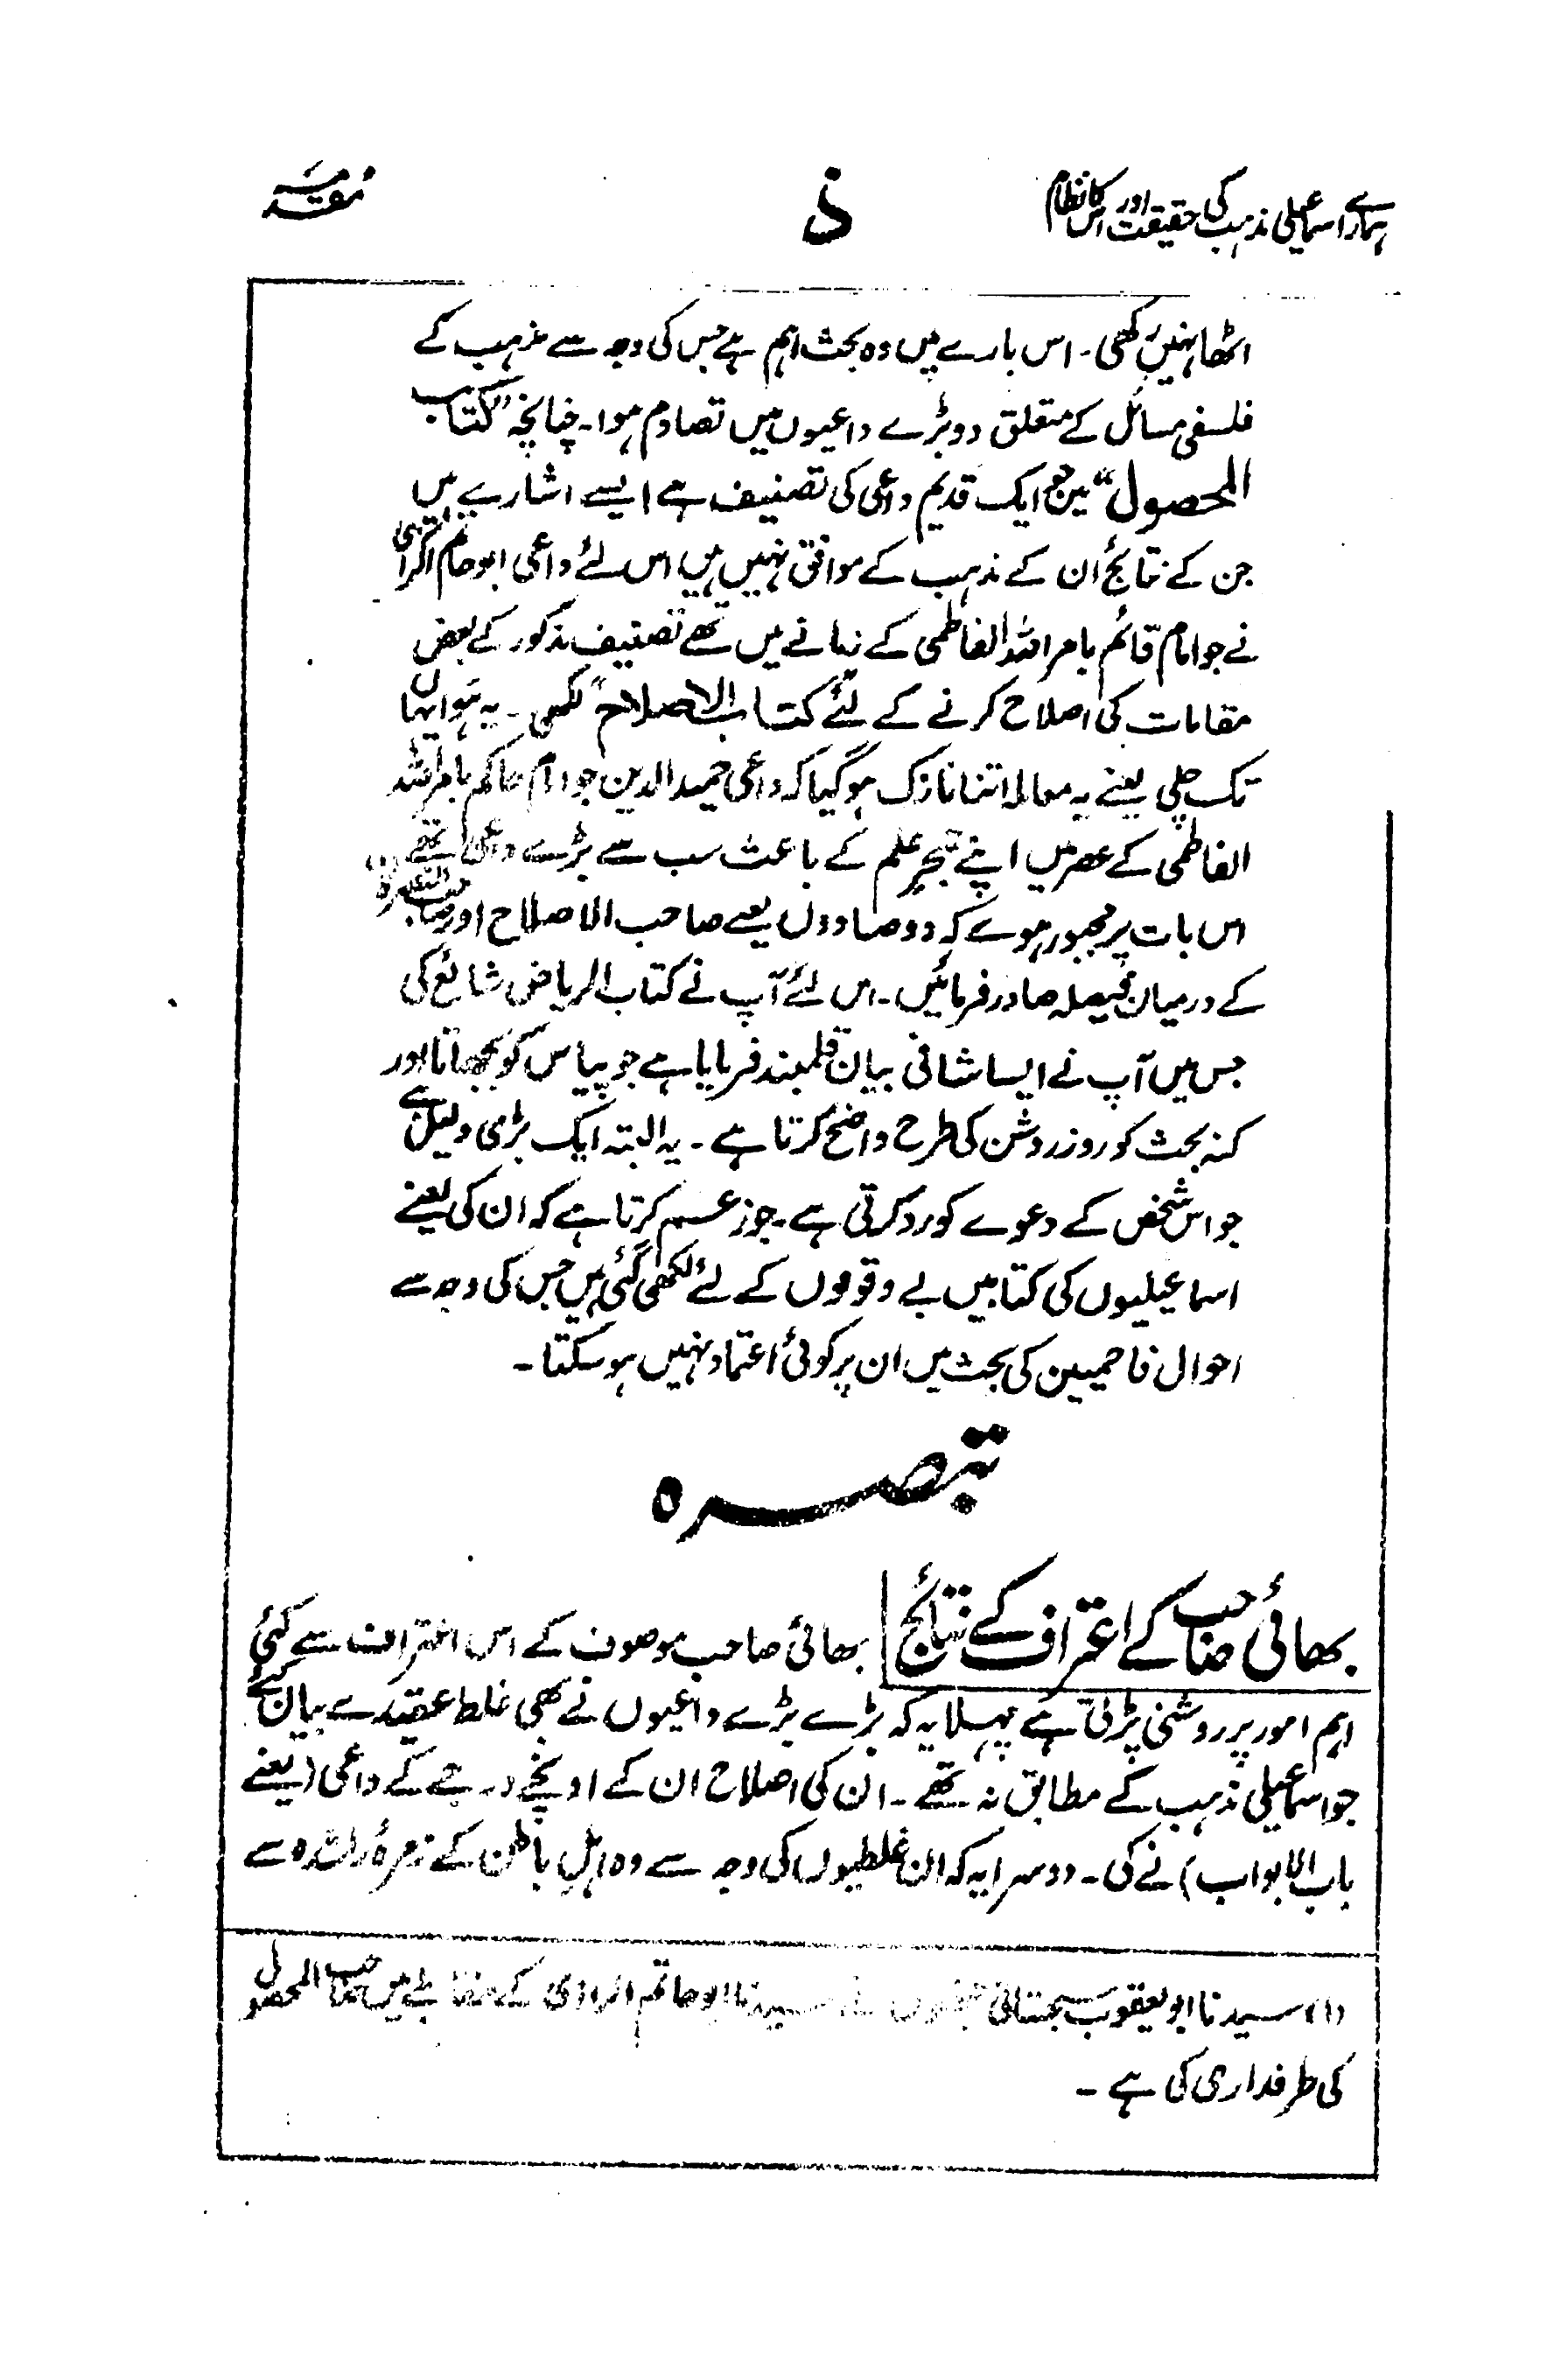 ہمارے اسماعیلی مذہب کی حقیقت اور اس کا نظام
ذ
مُقدّمہ
اٹھا نہیں رکھی۔ اس بارے میں وہ بحث اہم ہے جس کی وجہ سے مذہب کے
فلسفی مسائل کے متعلق دو بڑے داعیوں میں تصادم ہوا۔ چنانچہ "کتاب
المحصول" میں جو ایک قدیم داعی کی تصنیف ہے ایسے اشارے ہیں
جن کے نتائج ان کے مذہب کے موافق نہیں ہیں اس لئے داعی ابو حاتم الرازی
نے جو امام قائم بامر اللہ الفاطمی کے زمانے میں تھے تصنیف مذکور کے بعض
مقامات کی اصلاح کرنے کے لئے کتاب الاصلاح" لکھی۔ یہ ہوا یہاں
تک چلی یعنے یہ معاملہ اتنا نازک ہو گیا کہ داعی حمید الدین جو امام حاکم بامر اللہ
الفاطمی کے عصر میں اپنے تبحر علم کے باعث سب سے بڑے داعی تھے
اس بات پر مجبور ہوے کہ دو صادوں یعنے صاحب الاصلاح اور صاحب النصرۃ (۱)
کے درمیان فیصلہ صادر فرمائیں۔ اس لئے آپ نے کتاب الریاض شائع کی
جس میں آپ نے ایسا شافی بیان قلمبند فرمایا ہے جو پیاس کو بجھاتا اور
کنہ بحث کو روز روشن کی طرح واضح کرتا ہے۔ یہ البتہ ایک بڑی دلیل ہے
جو اس شخص کے دعوے کو رد کرتی ہے۔ جو زعم کرتا ہے کہ ان کی یعنے
اسماعیلیوں کی کتابیں بے وقوفوں کے لئے لکھی گئی ہیں جس کی وجہ سے
احوال فاطمیین کی بحث میں ان پر کوئی اعتماد نہیں ہو سکتا۔
تبصرہ
بھائی صاحب کے اعتراف کے نتائج | بھائی صاحب موصوف کے اس اعتراف سے کئی
اہم امور پر روشنی پڑتی ہے پہلا یہ کہ بڑے بڑے داعیوں نے بھی غلط عقیدے بیان کئے
جو اسماعیلی مذہب کے مطابق نہ تھے۔ ان کی اصلاح ان کے اونچے درجے کے داعی (یعنے
باب الابواب) نے کی۔ دوسرا یہ کہ ان غلطیوں کی وجہ سے وہ اہل باطن کے زمرۂ راشدہ سے
(۱) سیدنا ابو یعقوب سجستانی جنہوں نے سیدنا ابو حاتم الرازی کے مقابلے میں صاحب المحصول
کی طرفداری کی ہے۔